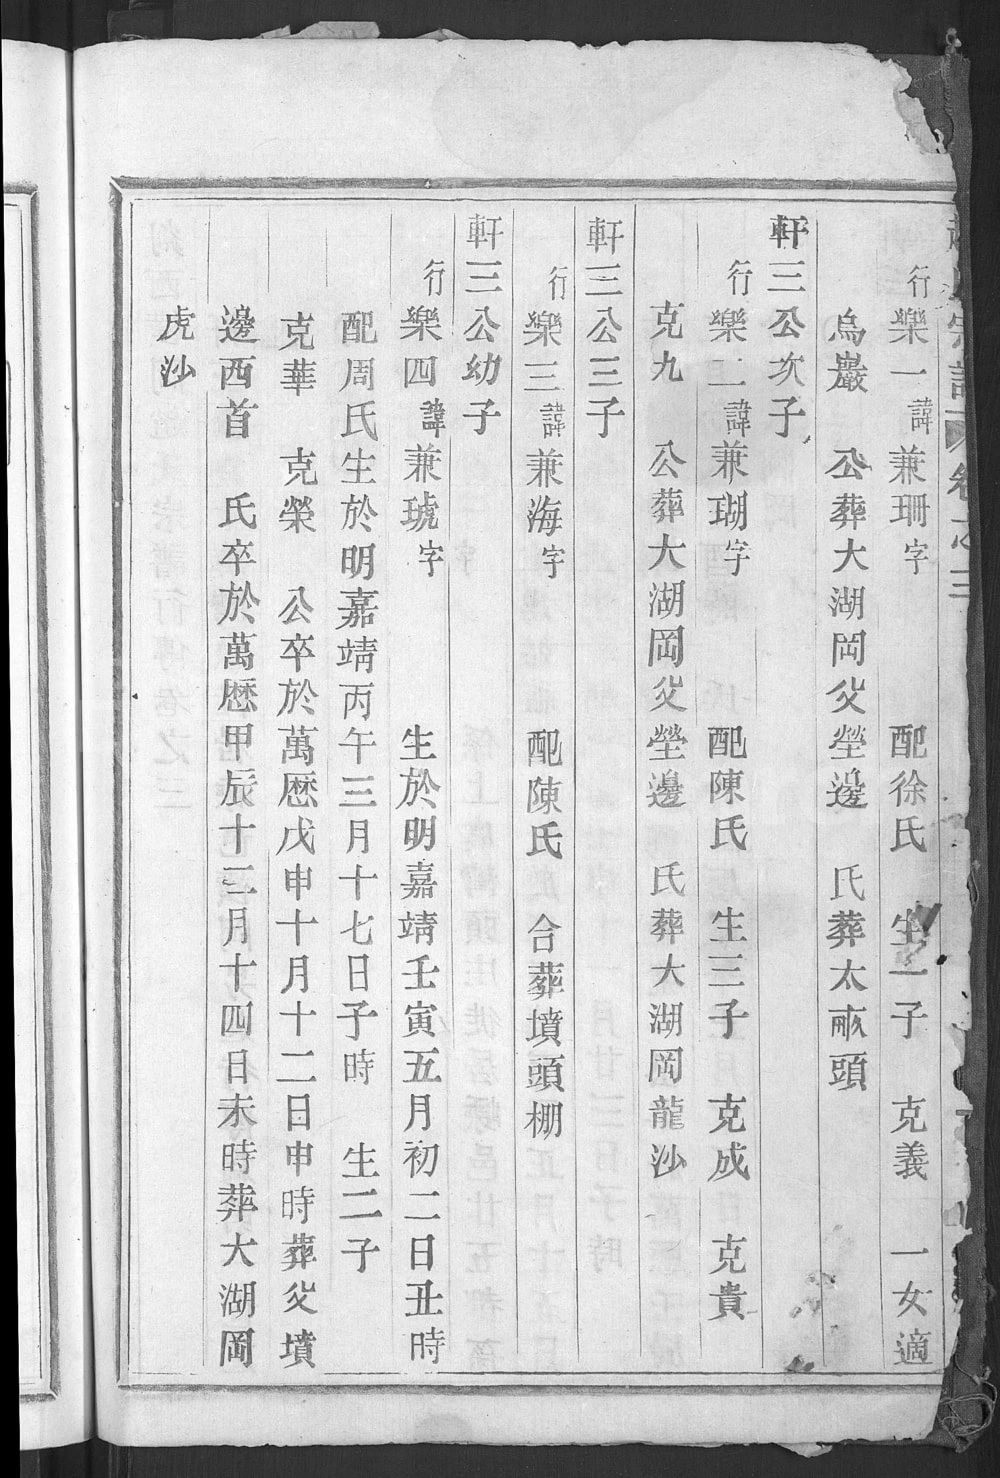 氏宗譜 卷之三
行樂一諱兼珊字 配徐氏 生一子 克義 一女適
烏巖 公葬大湖岡父塋邊 氏葬太𠩄頭
軒三公次子
行樂二諱兼瑚字 配陳氏 生三子 克成 克貴
克九 公葬大湖岡父塋邊 氏葬大湖岡龍沙
軒三公三子
行樂三諱兼海字 配陳氏 合葬墳頭棚
軒三公幼子
行樂四諱兼琥字 生於明嘉靖壬寅五月初二日丑時
配周氏生於明嘉靖丙午三月十七日子時 生二子
克華 克榮 公卒於萬歷戊申十月十二日申時葬父墳
邊西首 氏卒於萬歷甲辰十二月十四日未時葬大湖岡
虎沙